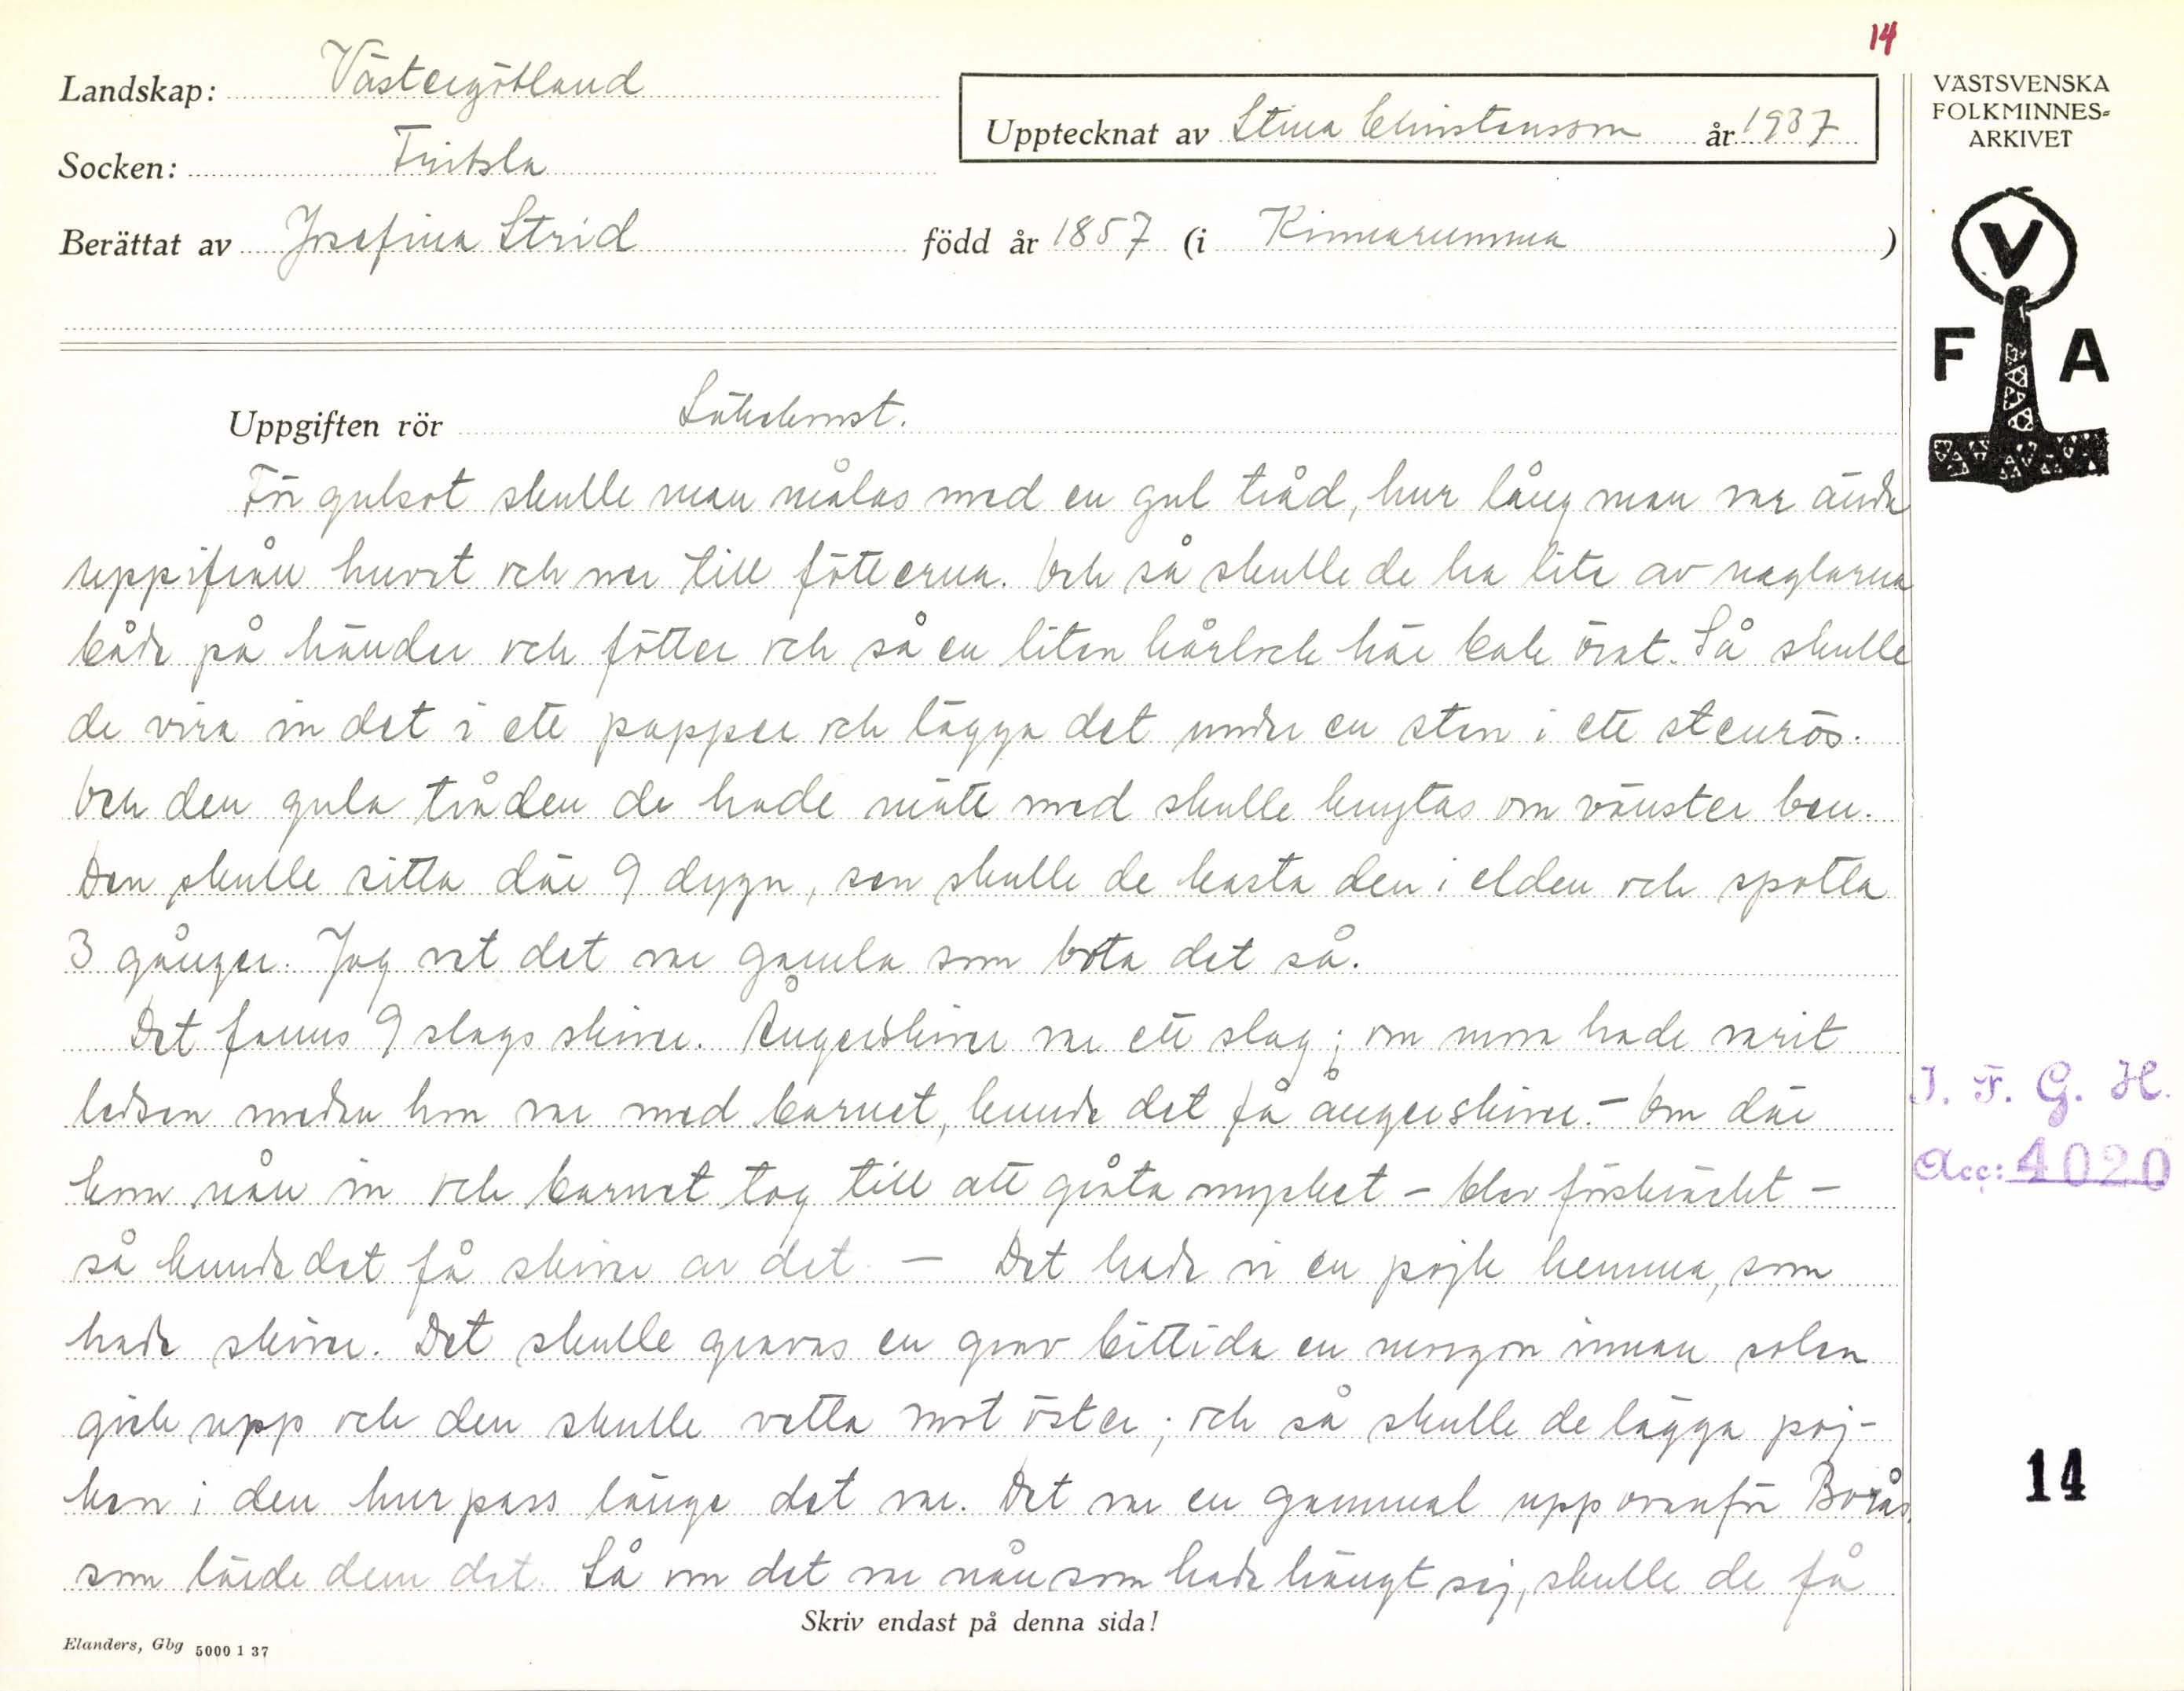 14
Landskap: Västergötland
Upptecknat av Stina Christensson år 1937
Socken: Fritsla
Berättat av Josefina Strid född år 1857 (i Kinnarumma )
VÄSTSVENSKA
FOLKMINNES-
ARKIVET
V
F A
Uppgiften rör Läkekonst.
För gulsot skulle man mätas med en gul tråd, hur lång man var ända
uppifrån huvet och ner till fötterna. Och så skulle de ha lite av naglarna
både på händer och fötter och så en liten hårlock här bak örat. Så skulle
de vira in det i ett papper och lägga det under en sten i ett stenrös.
Och den gula tråden de hade mätt med skulle knytas om vänster ben.
Den skulle sitta där 9 dygn, sen skulle de kasta den i elden och spotta
3 gånger. Jag vet det var gamla som bota det så.
Det fanns 9 slags skirve. Ångerskirve var ett slag; om mon hade varit
ledsen medan hon var med barnet, kunde det få ångerskirve. - Om där
kom nån in och barnet tog till att gråta mycket - blev förskräckt -
så kunde det få skirve av det. - Det hade vi en pojk hemma, som
hade skirve. Det skulle gravas en grav bittida en morgon innan solen
gick upp och den skulle vetta mot öster; och så skulle de lägga poj-
ken i den hur pass länge det var. Det var en gammal upp ovanför Borås,
som lärde dem det. Så om det var nån som hade hängt sej, skulle de få
Skriv endast på denna sida!
Elanders, Gbg 5000 1 37
I. F. G. H.
Acc: 4020
14